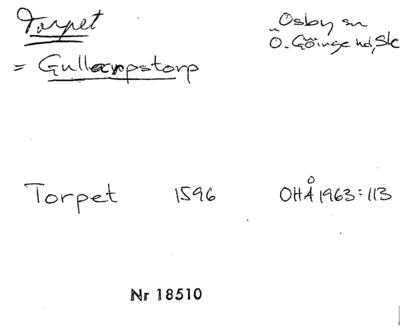 Torpet Osby sn
= Gullarpstorp Ö. Göinge hd, Sk
Torpet 1596 OHÅ 1963:113
Nr 18510